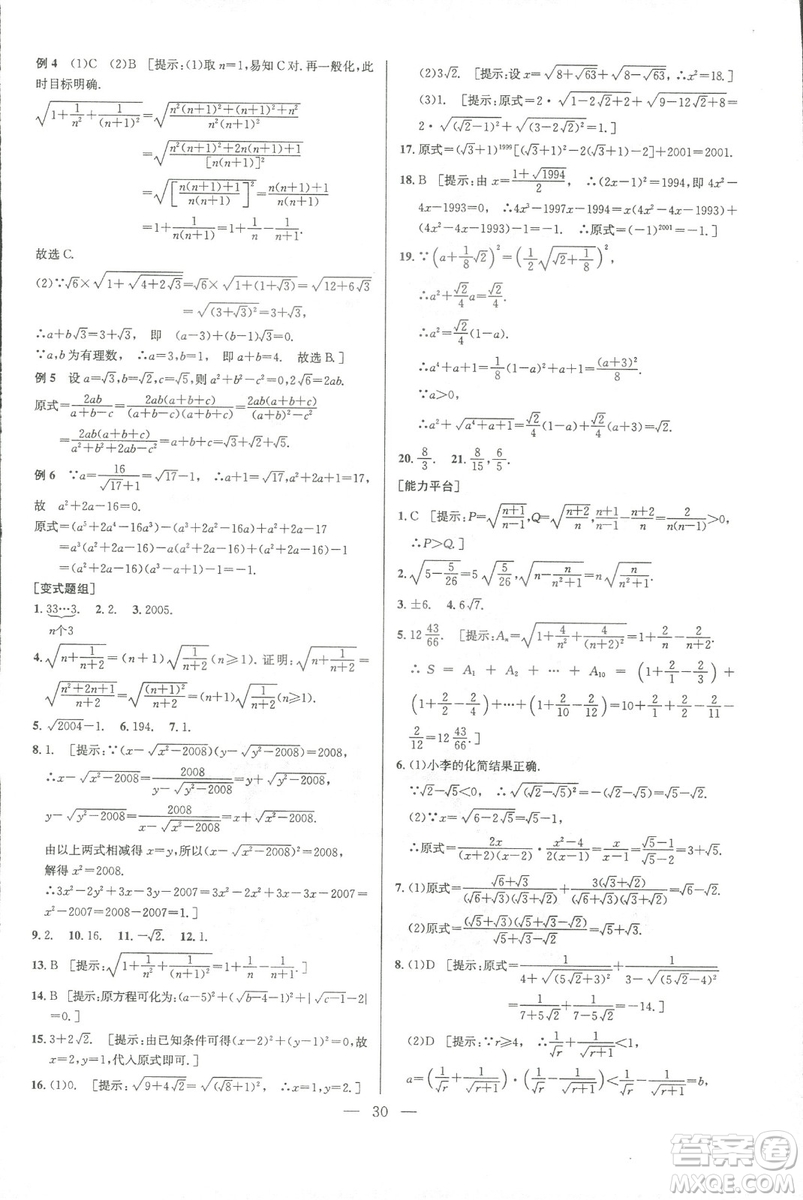 例4 (1)C (2)B [提示:(1)取 n=1,易知 C 对.再一般化,此
时目标明确.
√(1+1/n²+1/(n+1)²)=√((n²(n+1)²+(n+1)²+n²)/(n²(n+1)²))
=√((n²(n+1)²+2n(n+1)+1)/[n(n+1)]²)
=√([(n(n+1)+1)/(n(n+1))]²)
=1+1/(n(n+1))=1+1/n-1/(n+1).
故选 C.
(2)∵√6×√(1+√(4+2√3))=√6×√(1+(√3+1))=√(12+6√3)
=√((3+√3)²)=3+√3,
∴a+b√3=3+√3, 即 (a-3)+(b-1)√3=0.
∵a,b为有理数,∴a=3,b=1, 即 a+b=4. 故选 B.]
例5 设 a=√3,b=√2,c=√5,则 a²+b²-c²=0,2√6=2ab.
原式=2ab/(a+b-c)=2ab(a+b+c)/((a+b-c)(a+b+c))=2ab(a+b+c)/((a+b)²-c²)
=2ab(a+b+c)/(a²+b²-c²+2ab)=a+b+c=√3+√2+√5.
例6 ∵a=16/(√17+1)=√17-1,∴(a+1)²=17,∴a²+2a+1=17,
故 a²+2a-16=0.
原式=(a⁵+2a⁴-16a³)-(a³+2a²-16a)+a²+2a-17
=a³(a²+2a-16)-a(a²+2a-16)+(a²+2a-16)-1
=-1.
[变式题组]
1. 33…3. 2. 2. 3. 2005.
n个3
4. √(n+1/(n+2))=(n+1)√(1/(n+2))(n≥1). 证明:√(n+1/(n+2))=
√((n²+2n+1)/(n+2))=√((n+1)²/(n+2))=(n+1)√(1/(n+2))(n≥1).
5. √2004-1. 6. 194. 7. 1.
8. 1. [提示:∵(x-√(x²-2008))(y-√(y²-2008))=2008,
∴x-√(x²-2008)=2008/(y-√(y²-2008))=y+√(y²-2008),
y-√(y²-2008)=2008/(x-√(x²-2008))=x+√(x²-2008).
由以上两式相减得 x=y,代入得(x-√(x²-2008))²=2008.
解得 x²=2008.
∴3x²-2y²+3x-3y-2007=3x²-2x²+3x-3x-2007=
x²-2007=2008-2007=1.]
9. 2. 10. 16. 11. -√2. 12. 1.
13. B [提示:√(1+1/n²+1/(n+1)²)=1+1/n-1/(n+1).]
14. B [提示:原方程可化为:(a-5)²+(√(b-4)-1)²+|√(c-1)-2|=
0.]
15. 3+2√2. [提示:由已知条件可得(x-2)²+√(y-1)=0,故
x=2,y=1,代入原式即可.]
16. (1)0. [提示:√(9+4√2)=√((√8+1)²), ∴x=2.]
(2)3√2. [提示:设 x=√(8+√63)+√(8-√63), ∴x²=18.]
(3)1. [提示:原式=2·√(1-2√2+2)-√(9-12√2+8)=
2·√((√2-1)²)+√((3-2√2)²)=1.]
17. 原式=(√3+1)¹⁹⁹⁹[(√3+1)²-2(√3+1)-2]+2001=2001.
18. B [提示:由 x=(1+√1994)/2, ∴(2x-1)²=1994,即 4x²-
4x-1993=0, ∴4x³-1997x-1994=x(4x²-4x-1993)+
(4x²-4x-1993)-1=-1. ∴原式=(-1)²⁰⁰¹=-1.]
19. ∵(a+1/8√2)²=(1/2√(√2+1/8))²,
∴a²+√2/4a=√2/4,
∴a²=√2/4(1-a).
∴a⁴+a+1=1/8(1-a)²+a+1=(a+3)²/8.
∵a>0,
∴a²+√(a⁴+a+1)=√2/4(1-a)+(a+3)/(2√2)=√2.
20. 8/3. 21. 8/15,6/5.
[能力平台]
1. C [提示:P=√((n+1)/(n-1)),Q=√((n+2)/n),(n+1)/(n-1)-(n+2)/n=2/(n(n-1))>0,
∴P>Q.]
2. √(5-5/26)=5√(5/26);√(n-n/(n²+1))=n√(n/(n²+1)).
3. ±6. 4. 6√7.
5. 12 43/66. [提示:Aₙ=√(1+4/n²+4/(n+2)²)=1+2/n-2/(n+2),
∴ S = A₁ + A₂ + … + A₁₀ = (1+2/1-2/3)+
(1+2/2-2/4)+…+(1+2/10-2/12)=10+2/1+2/2-2/11-
2/12=12 43/66.]
6. (1)小李的化简结果正确.
∵√2-√5<0, ∴√((√2-√5)²)=√5-√2.
(2)∵x=√(6-2√5)=√5-1,
∴原式=2x/((x+2)(x-2))·(x²-4)/(2(x-1))=x/(x-1)=(√5-1)/(√5-2)=3+√5.
7. (1)原式=(√6+√3)/((√6+√3)(√3+√2))+3(√3+√2)/((√6+√3)(√3+√2))=√6-√2.
(2)原式=(√6+√3)(√3+√2)/((√6+√3)+3(√3+√2))=(√6+√2)/4.
8. (1)D [提示:原式=1/(4+√((5√2+3)²))-1/(3-√((5√2-4)²))=
1/(7+5√2)-1/(7-5√2)=-14.]
(2)D [提示:∵r≥4, ∴1/√r+1/√(r+1)<1,
a=(1/√r+1/√(r+1))·(1/√r-1/√(r+1))<1/√r-1/√(r+1),
— 30 —
答案圈
MXQE.COM